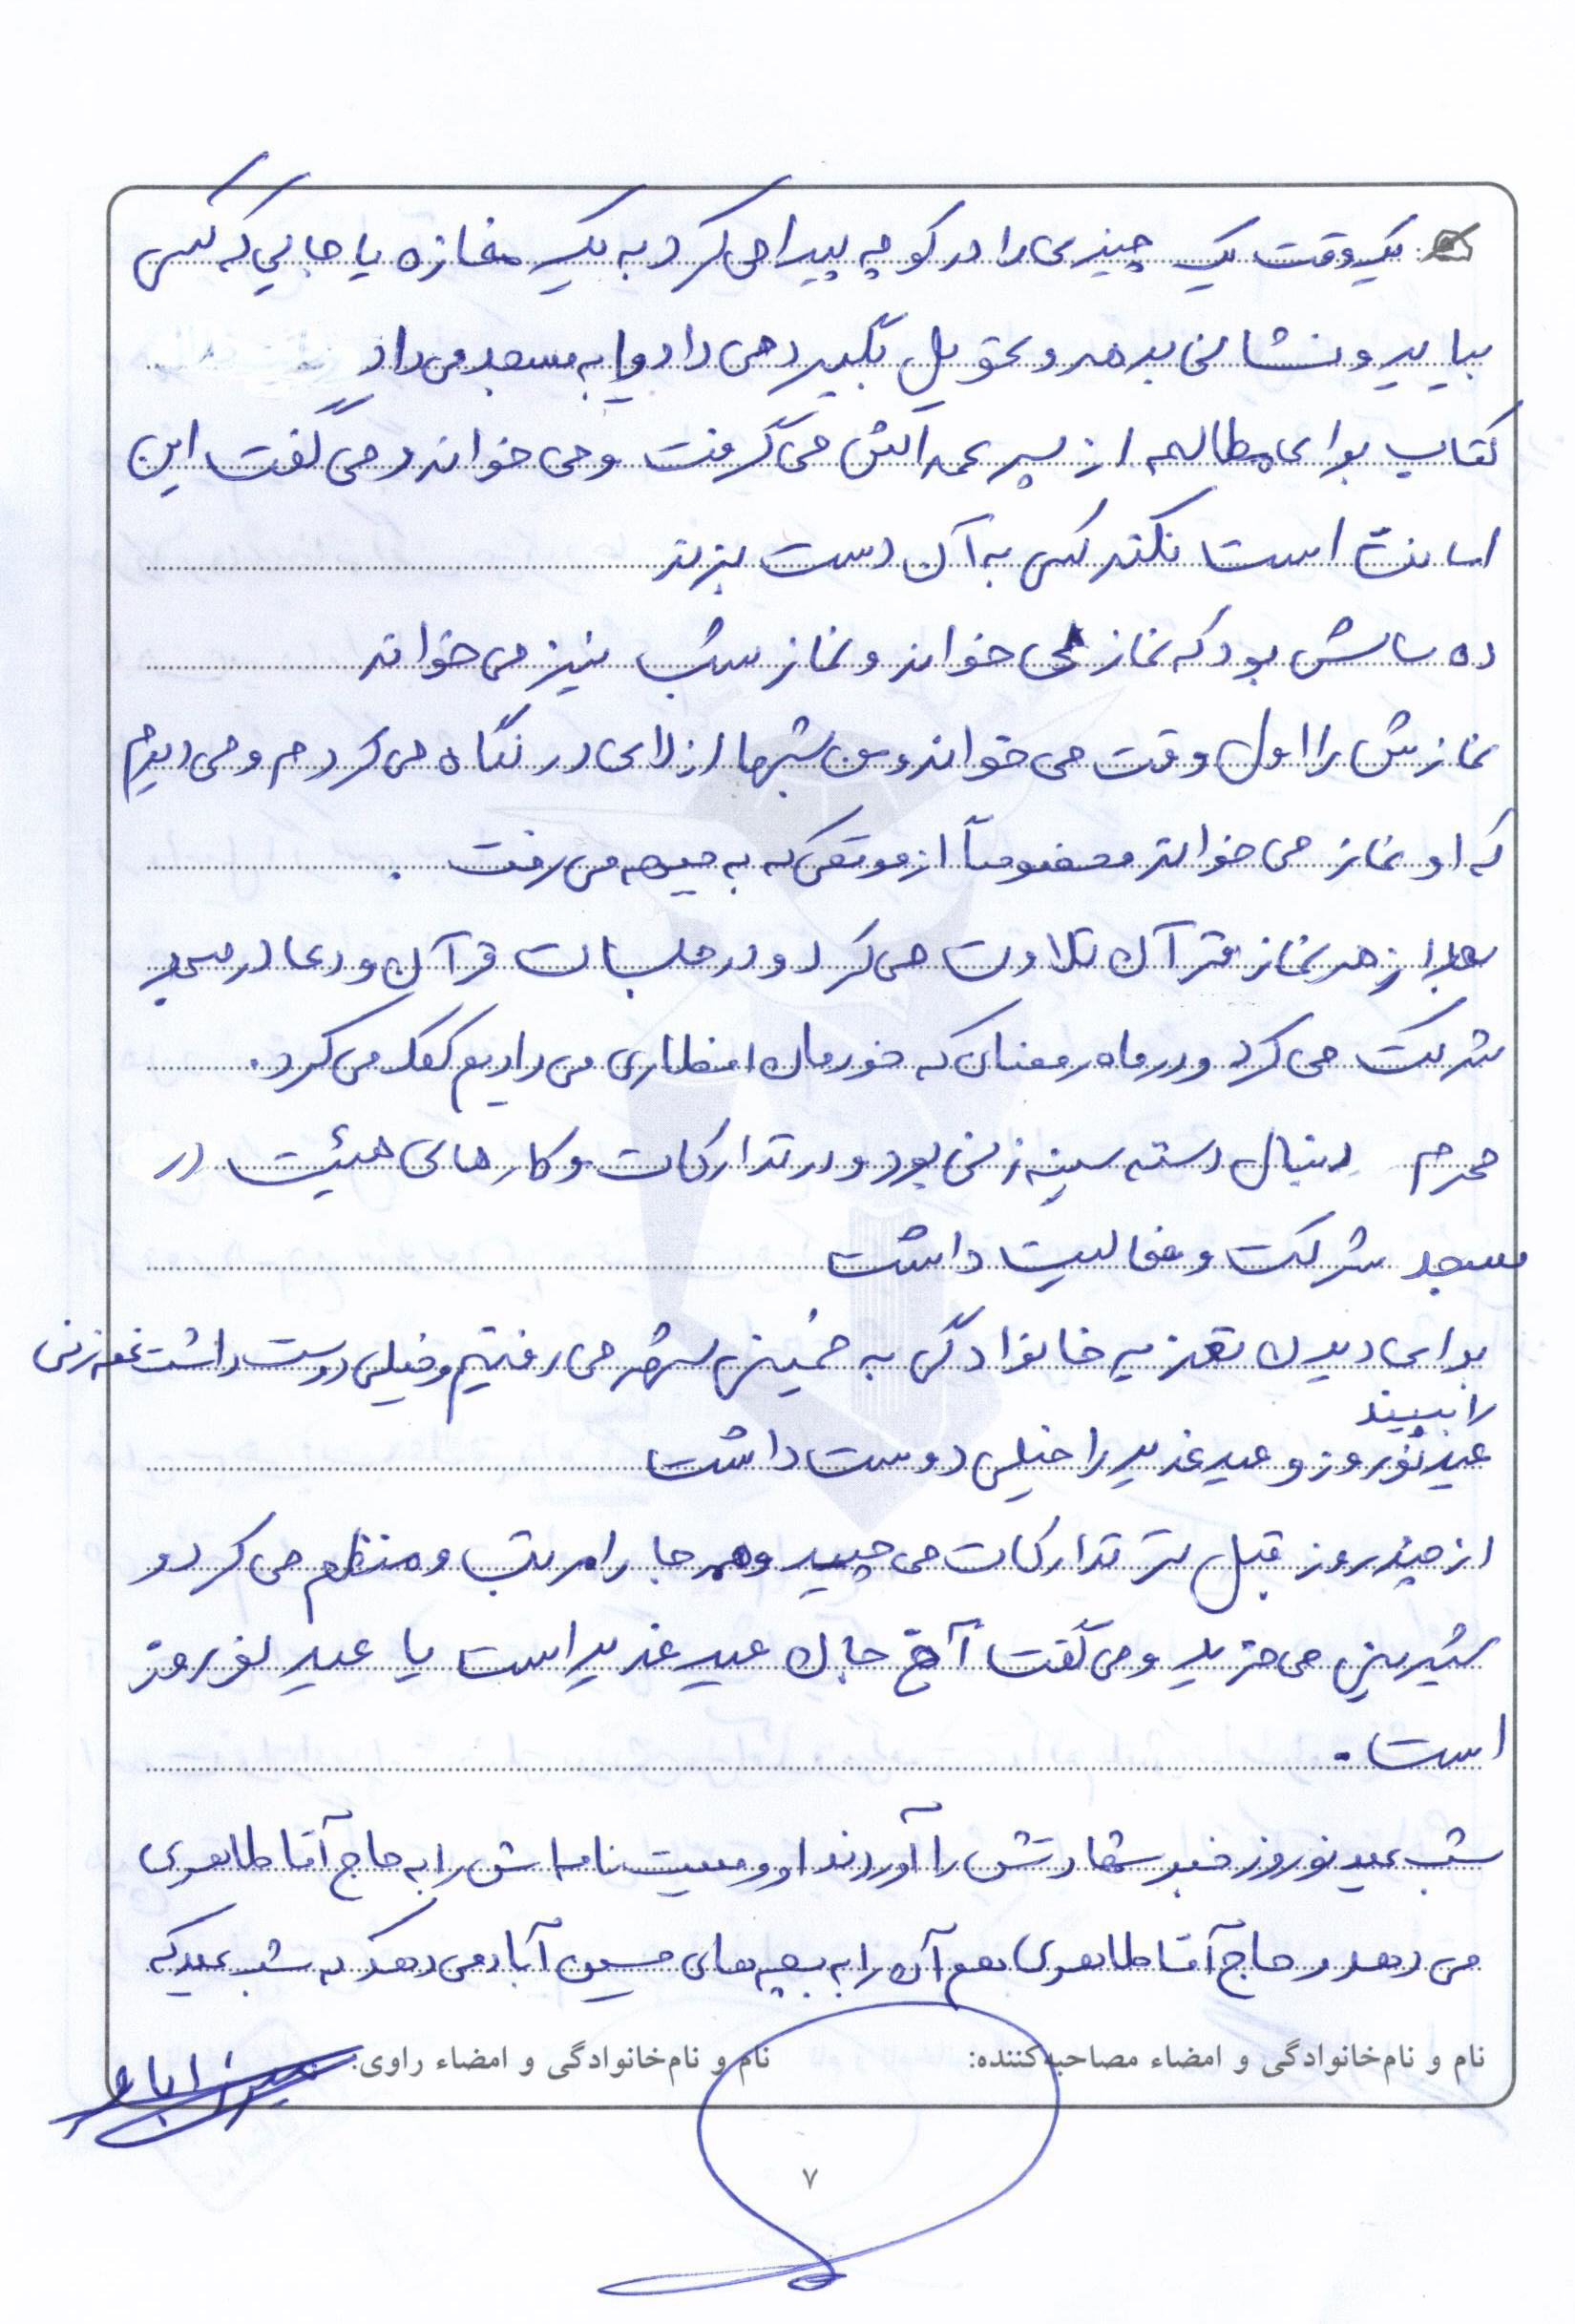 یک وقت یک چیزی را در کوچه پیدا می کرد به یک مغازه یا جایی که کسی
بیاید و نشانی بدهد و تحویل بگیرد می داد ویا به مسجد می داد
کتاب برای مطالعه از پسر عمه اش می گرفت و می خواند و می گفت این
امانت است نکند کسی به آن دست بزند
ده سالش بود که نماز می خواند و نماز شب نیز می خواند
نمازش را اول وقت می خواند و من شبها از لای در نگاه می کردم و می دیدم
که او نماز می خواند مخصوصاً از موقعی که به جبهه می رفت .
بعد از هر نماز قرآن تلاوت می کرد و در جلسات قرآن و دعا در مسجد
شرکت می کرد و در ماه رمضان که خودمان افطاری می دادیم کمک می کرد .
محرم دنبال دسته سینه زنی بود و در تدارکات و کارهای هیئت در
مسجد شرکت و فعالیت داشت
برای دیدن تعزیه خانوادگی به خمینی شهر می رفتیم و خیلی دوست داشت قمه زنی
را ببیند
عید نوروز و عید غدیر را خیلی دوست داشت
از چند روز قبل تر تدارکات می چیید و همه جا را مرتب و منظم می کرد و
شیرینی می خرید و می گفت آخ جان عید غدیر است یا عید نوروز
است .
شب عید نوروز خبر شهادتش را آوردند او وصیت نامه اش را به حاج آقا طاهری
می دهد و حاج آقا طاهری هم آن را به بچه های حسین آباد می دهد که شب عید که
نام و نام‌خانوادگی و امضاء مصاحبه‌کننده: نام و نام‌خانوادگی و امضاء راوی:
۷